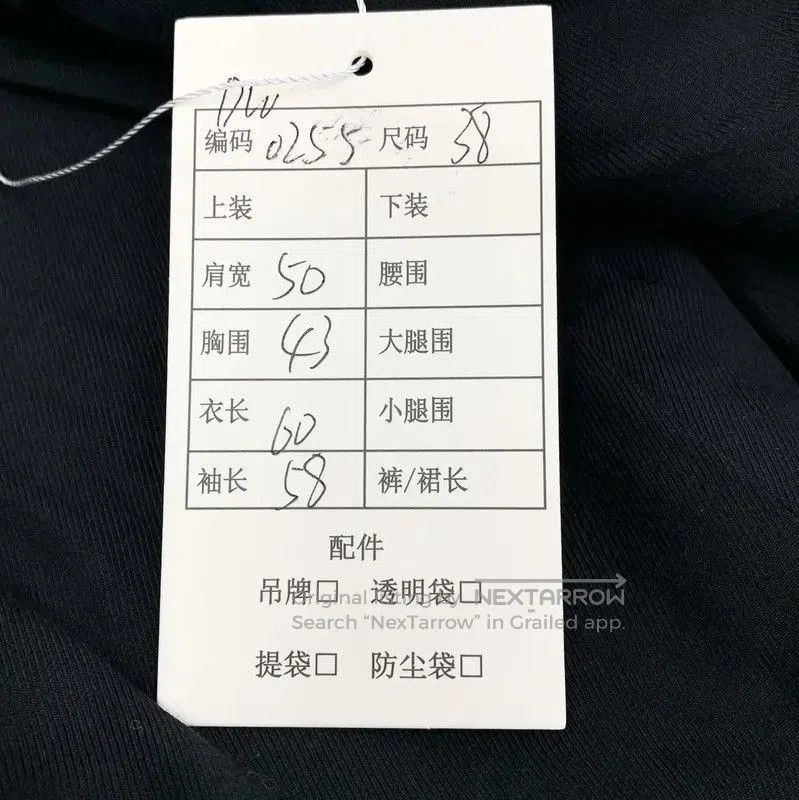 编码 0255 尺码 38
上装 下装
肩宽 50 腰围
胸围 43 大腿围
衣长 60 小腿围
袖长 58 裤/裙长
配件
吊牌□ 透明袋□
Original listing by NEXTARROW
Search “NexTarrow” in Grailed app.
提袋□ 防尘袋□